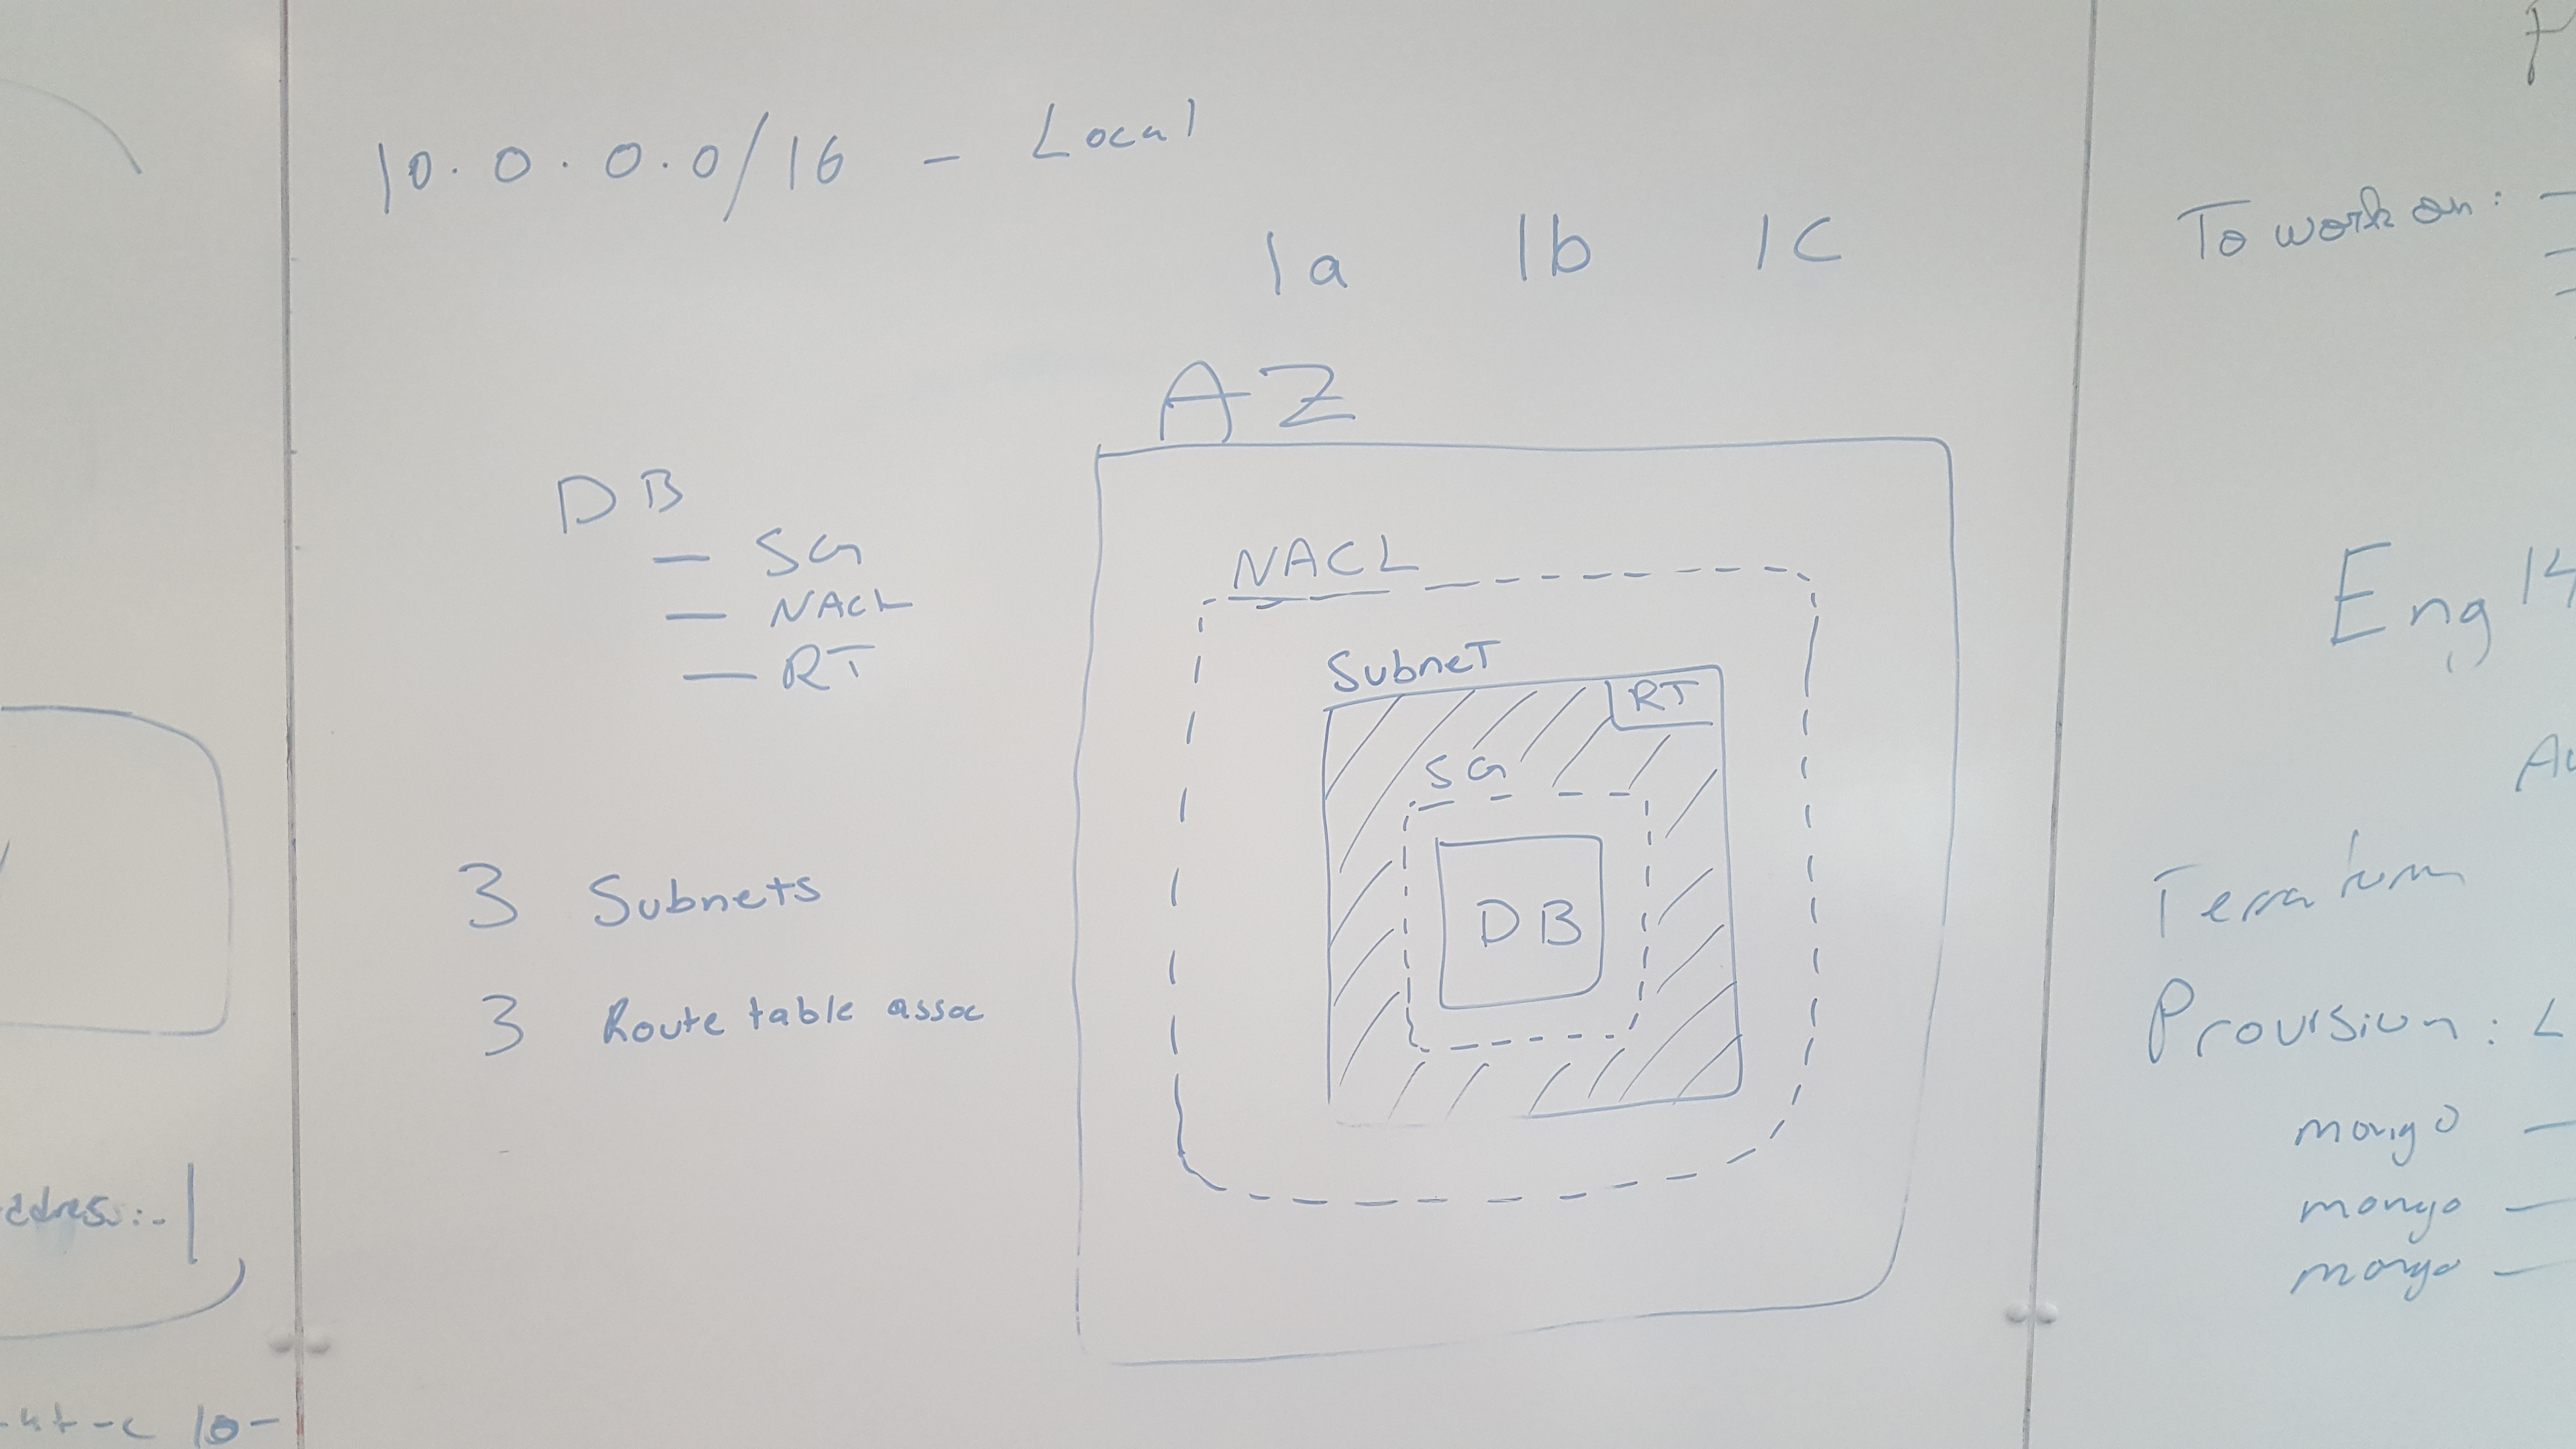 10.0.0.0/16 - Local
1a 1b 1c
AZ
DB
- SG
- NACL
- RT
3 Subnets
3 Route table assoc
NACL
Subnet
RT
SG
DB
To work on:
Eng 14
Terraform
Provision:
mongo -
mongo -
mongo -
10-